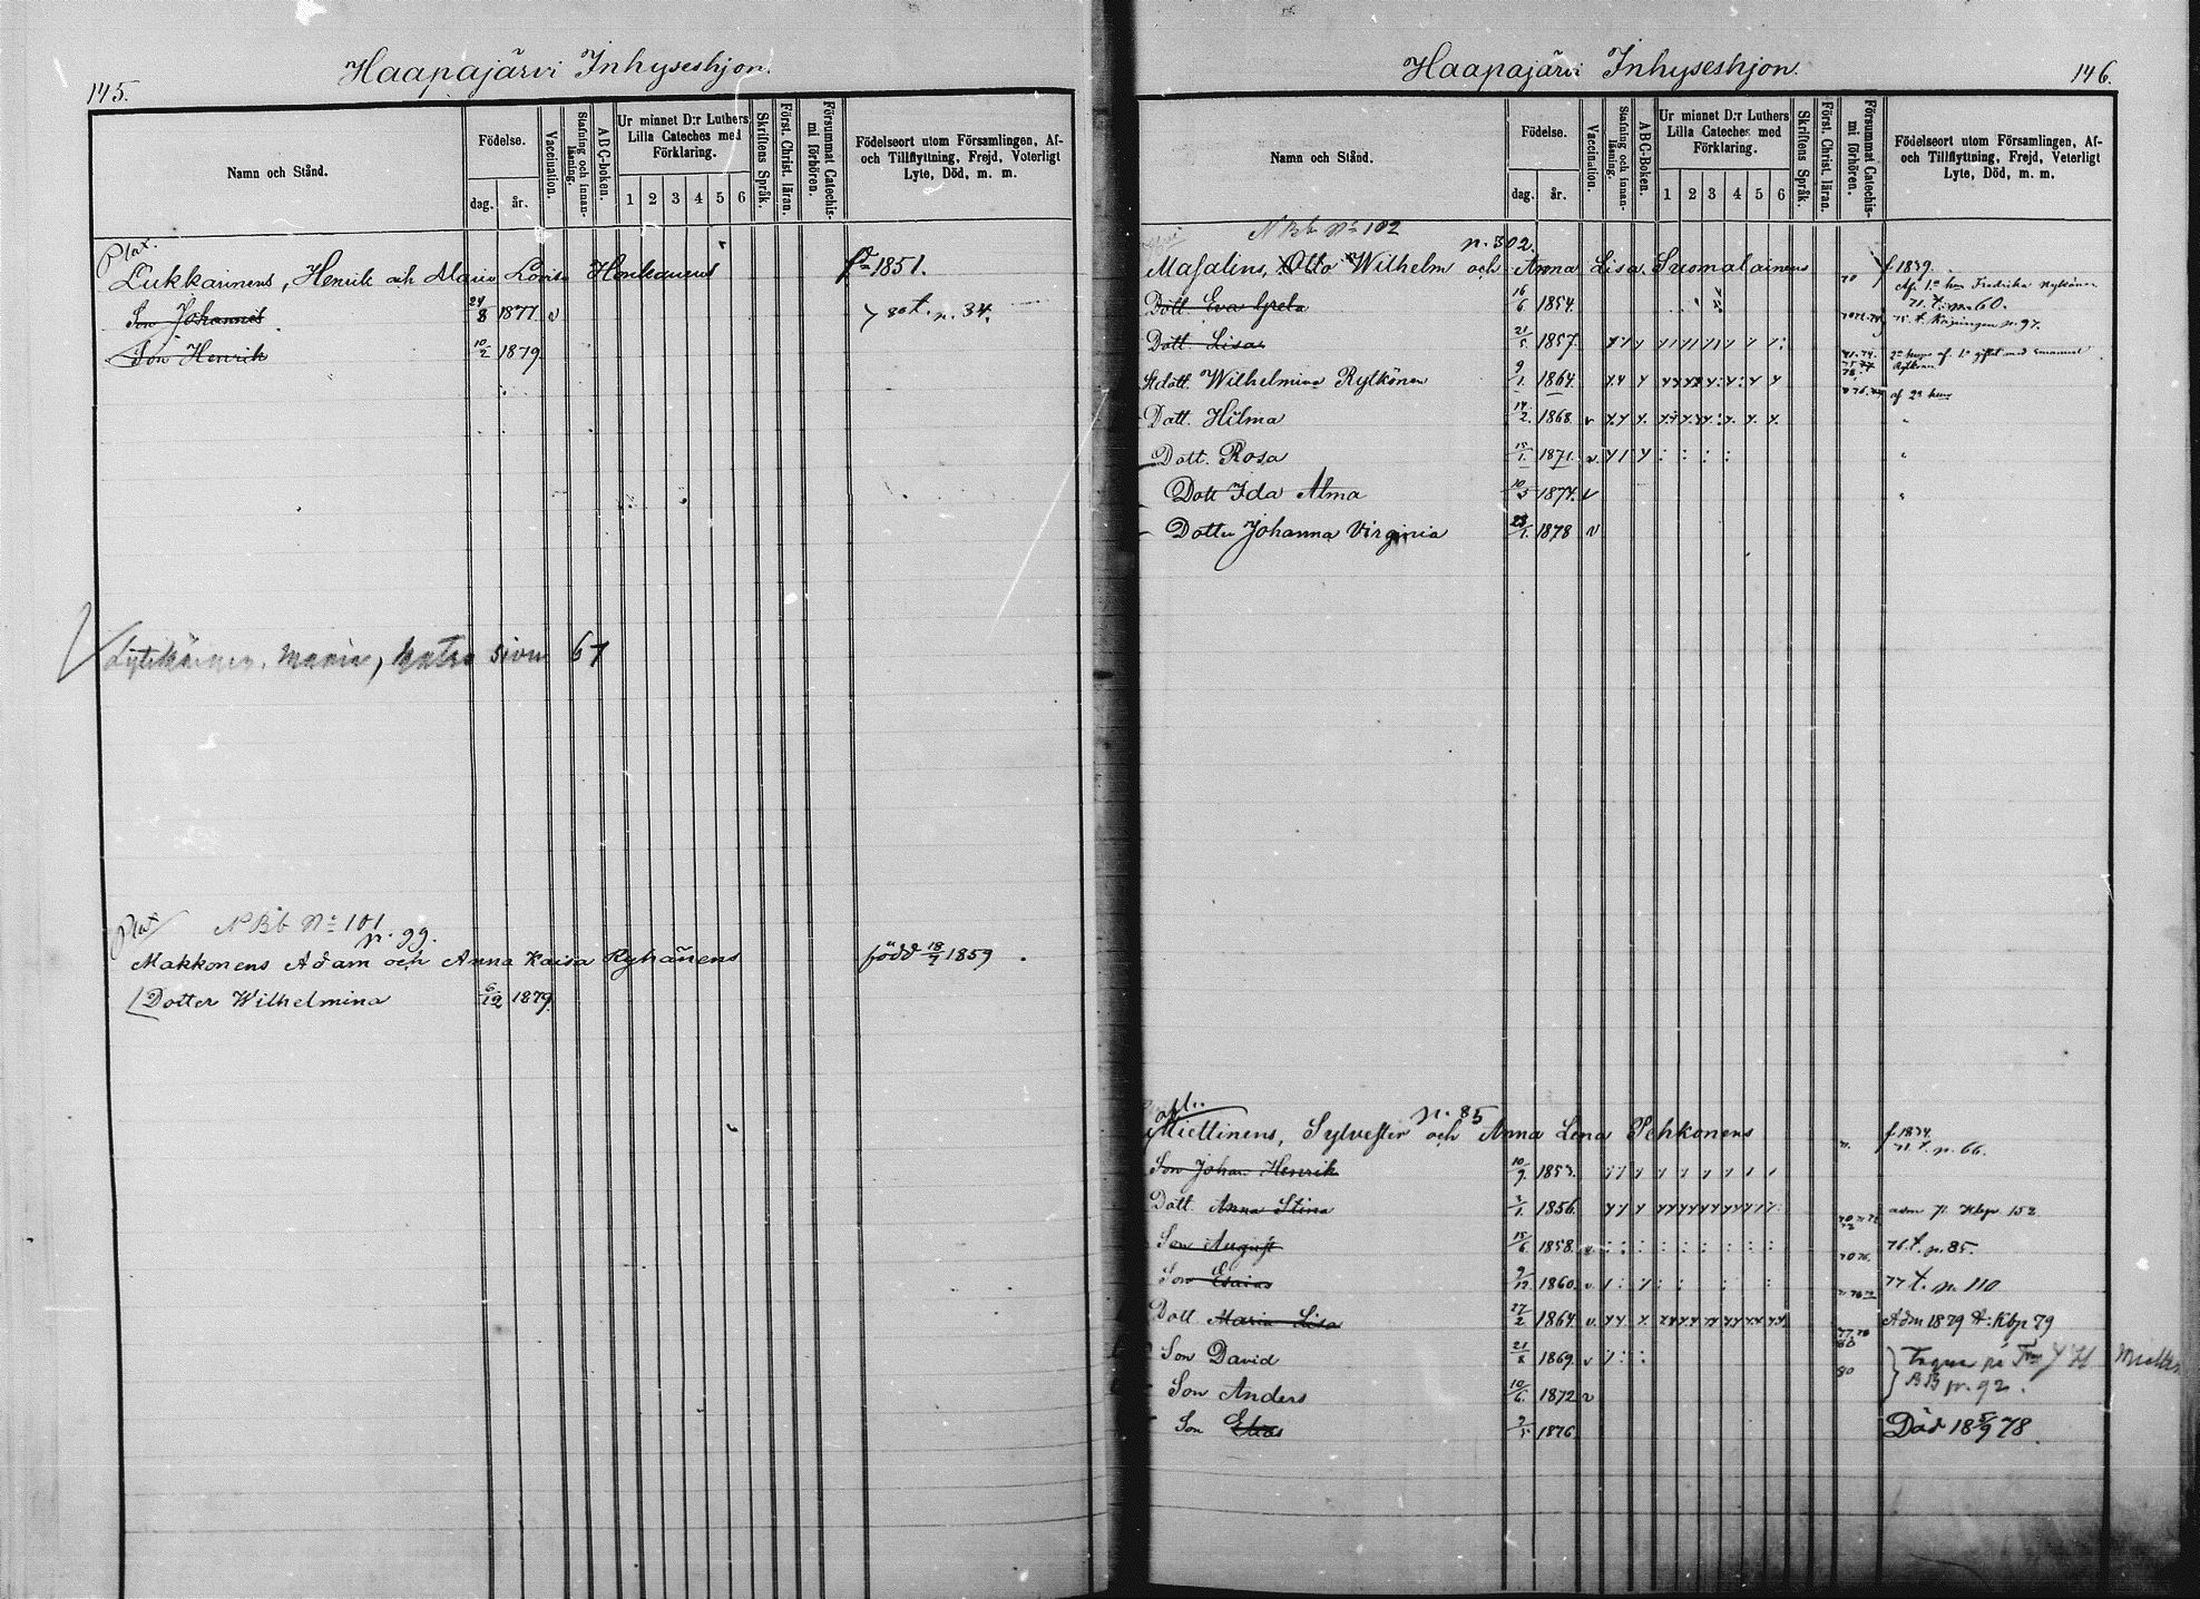 145.
Haapajärvi Inhyseshjon.
Namn och Stånd.
Födelse.
dag.
år.
Vaccination.
Stafning och innan-läsning.
ABC-boken.
Ur minnet D:r Luthers Lilla Cateches med Förklaring.
1 2 3 4 5 6
Skriftens Språk.
Först. Christ. läran.
Försummat Catechis-mi förhören.
Födelseort utom Församlingen, Af- och Tillflyttning, Frejd, Voterligt Lyte, Död, m. m.
Plat.
Lukkarinens, Henrik och Maria Lovisa Honkanens f. 1851.
Son Johannes 24/8 1877. v 80 t. p. 34.
Son Henrik 10/2 1879.
Maria, katso sivu 67
Plat N Bb No 101
p. 99.
Makkonens Adam och Anna Kaisa Ryhänens född 18/7 1859.
Dotter Wilhelmina 6/12 1879.
Haapajärvi Inhyseshjon.
146.
Namn och Stånd.
Födelse.
dag.
år.
Vaccination.
Stafning och innan-läsning.
ABC-Boken.
Ur minnet D:r Luthers Lilla Cateches med Förklaring.
1 2 3 4 5 6
Skriftens Språk.
Först. Christ. läran.
Försummat Catechis-mi förhören.
Födelseort utom Församlingen, Af- och Tillflyttning, Frejd, Veterligt Lyte, Död, m. m.
N Bb No 102
p. 302.
Masalins, Otto Wilhelm och Anna Lisa Suomalainens 70 f 1839.
Dott. Eva Greta 16/6 1854. 71. t. p. 60.
Dott. Lisa 21/5 1857. 75. t. p. 97.
dött. Wilhelmina Rytkönen 9/1 1864.
Dott. Hilma 14/2 1868. v
Dott. Rosa 15/1 1871. v.
Dott Ida Alma 10/5 1874. v
Dotter Johanna Virginia 23/1 1878 v
p. 85
Miettinens, Sylvester och Anna Lena Pehkonens f. 1834.
71. t. p. 66.
Son Johan Henrik 10/9 1853.
Dott. Anna Stina 1856. adm 71 Kbp 152
Son August 15/6 1858. v 76. t. p. 85.
Son Esaias 9/12 1860. v 77 t. p. 110
Dott Maria Lisa 27/2 1864. v. Adm 1879 t. Kbp 79
Son David 21/8 1869. v
Son Anders 10/6 1872 v BB p. 92.
Son Elias 1876. Död 18 5/9 78.